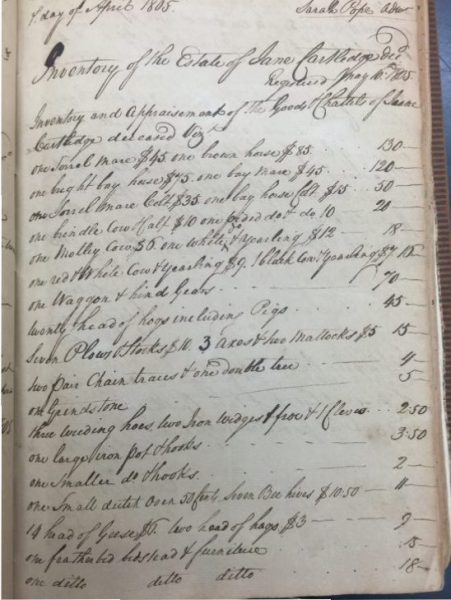 day of April 1805 Sarah Pope adm
Inventory of the Estate of Jane Cartledge decd
Registered May 10th 1805
Inventory and Appraisement of the Goods & Chattels of Jane
Cartledge deceased Vizt
one Sorrel mare $45 one brown horse $85 130—
one bright bay horse $75 one bay mare $45 120—
one Sorrel mare Colt $35 one bay horse Colt $15 50
one brindle Cow & Calf $10 one red do & do 10 20
one Motley Cow $6 one White do & yearling $12 — 18
one red & White Cow & yearling $9. 1 black Cow & yearling $7
one Waggon & hind Gears 70—
twenty head of hogs including Pigs 45—
Seven Plows & Stocks $10. 3 Axes & two Mattocks $5 15
two pair Chain traces & one double tree 4
one Grindstone 5
three weeding hoes, two Iron Wedges & froe & 1 Clevis 2.50
one large iron pot & hooks 3.50
one Smaller do & hooks 2—
one Small Oven 50 Seven Bee hives $10.50 — 11
14 head of Geese two head of hogs $3 — 9
one featherbed bedstead & furniture 15
one ditto ditto ditto 18—